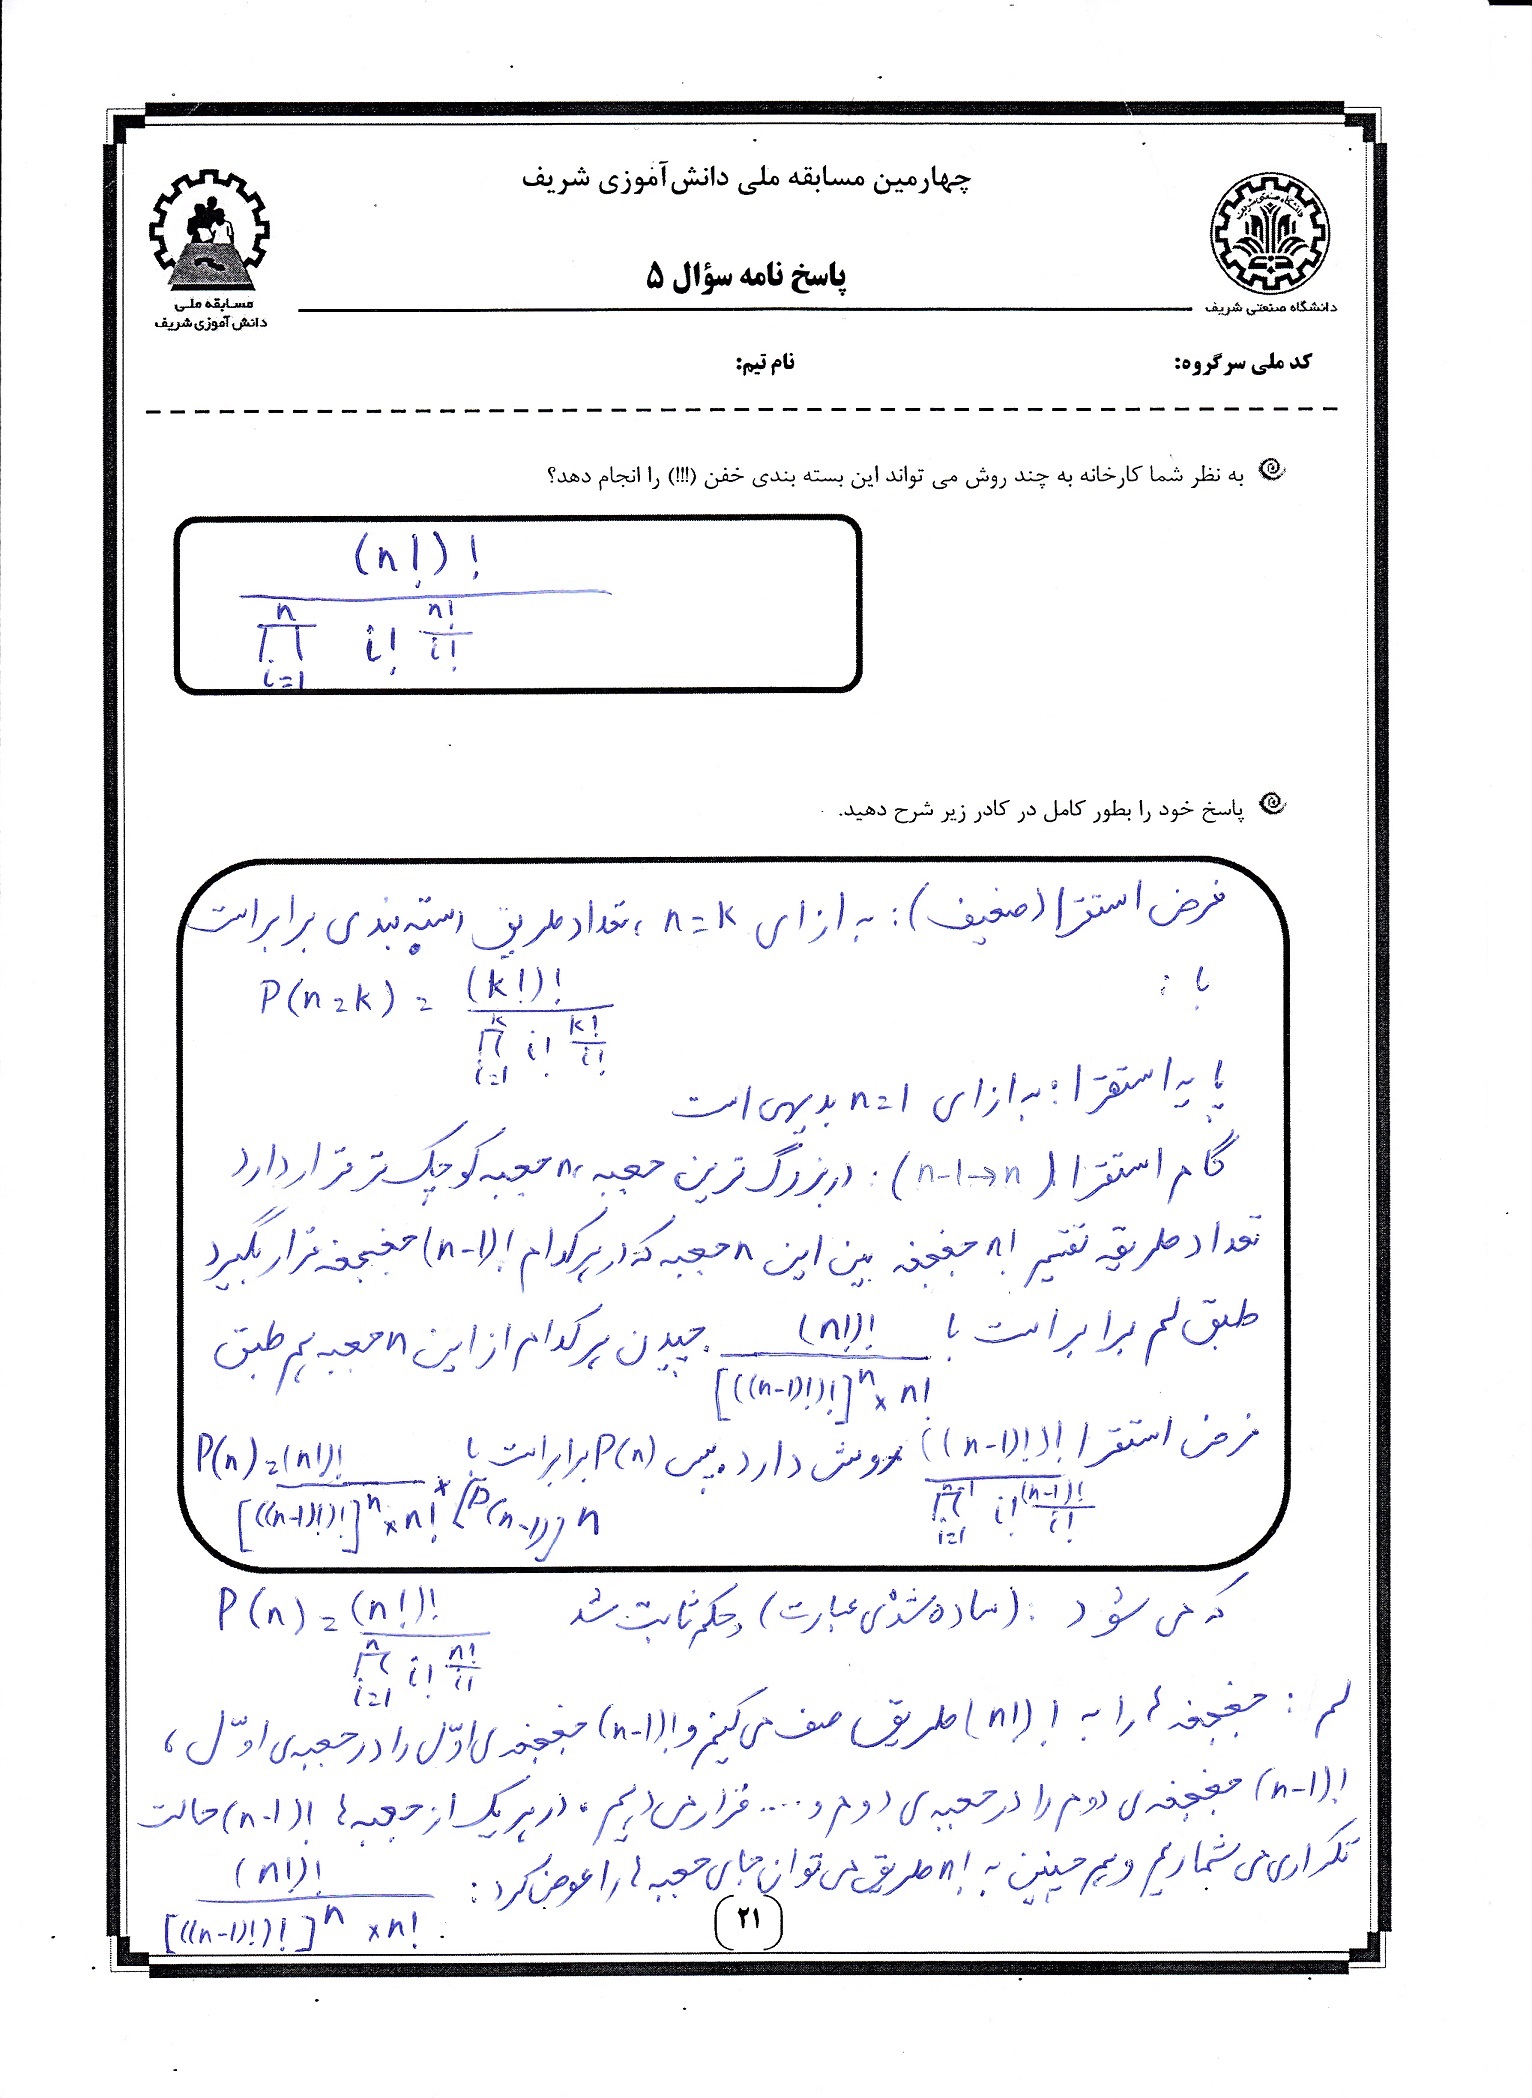 چهارمین مسابقه ملی دانش‌آموزی شریف
پاسخ نامه سؤال ۵
مسابقه ملی
دانش آموزی شریف
دانشگاه صنعتی شریف
کد ملی سرگروه:
نام تیم:
به نظر شما کارخانه به چند روش می تواند این بسته بندی خفن (!!!) را انجام دهد؟
(n!)!
n n!
∏ i! i!
i=1
پاسخ خود را بطور کامل در کادر زیر شرح دهید.
فرض استقرا (ضعیف): به ازای n=k، تعداد طریق بسته بندی برابر است
با: P(n=k) = (k!)!
k k!
∏ i! i!
i=1
پایه استقرا: به ازای n=1 بدیهی است
گام استقرا (n-1→n): در بزرگ ترین جعبه، n جعبه کوچک تر قرار دارد
تعداد طریقه تقسیم n! جغجغه بین این n جعبه که در هر کدام (n-1)! جغجغه قرار بگیرد
طبق لم برابر است با (n!)! . چیدن هر کدام از این n جعبه هم طبق
[((n-1)!)!]^n × n!
فرض استقرا ((n-1)!)! روش دارد. پس P(n) برابر است با P(n) = (n!)!
n-1 (n-1)!
∏ i! i!
i=1
[((n-1)!)!]^n × n! × [P(n-1)]^n
که می شود: (ساده شده ی عبارت) و حکم ثابت شد P(n) = (n!)!
n n!
∏ i! i!
i=1
لم: جغجغه ها را به (n!)! طریق صف می کنیم و (n-1)! جغجغه ی اوّل را در جعبه ی اوّل،
(n-1)! جغجغه ی دوم را در جعبه ی دوم و .... قرار می دهیم. در هر یک از جعبه ها (n-1)! حالت
تکراری می شماریم و هم چنین به n! طریق می توان جای جعبه ها را عوض کرد: (n!)!
[((n-1)!)!]^n × n!
۲۱